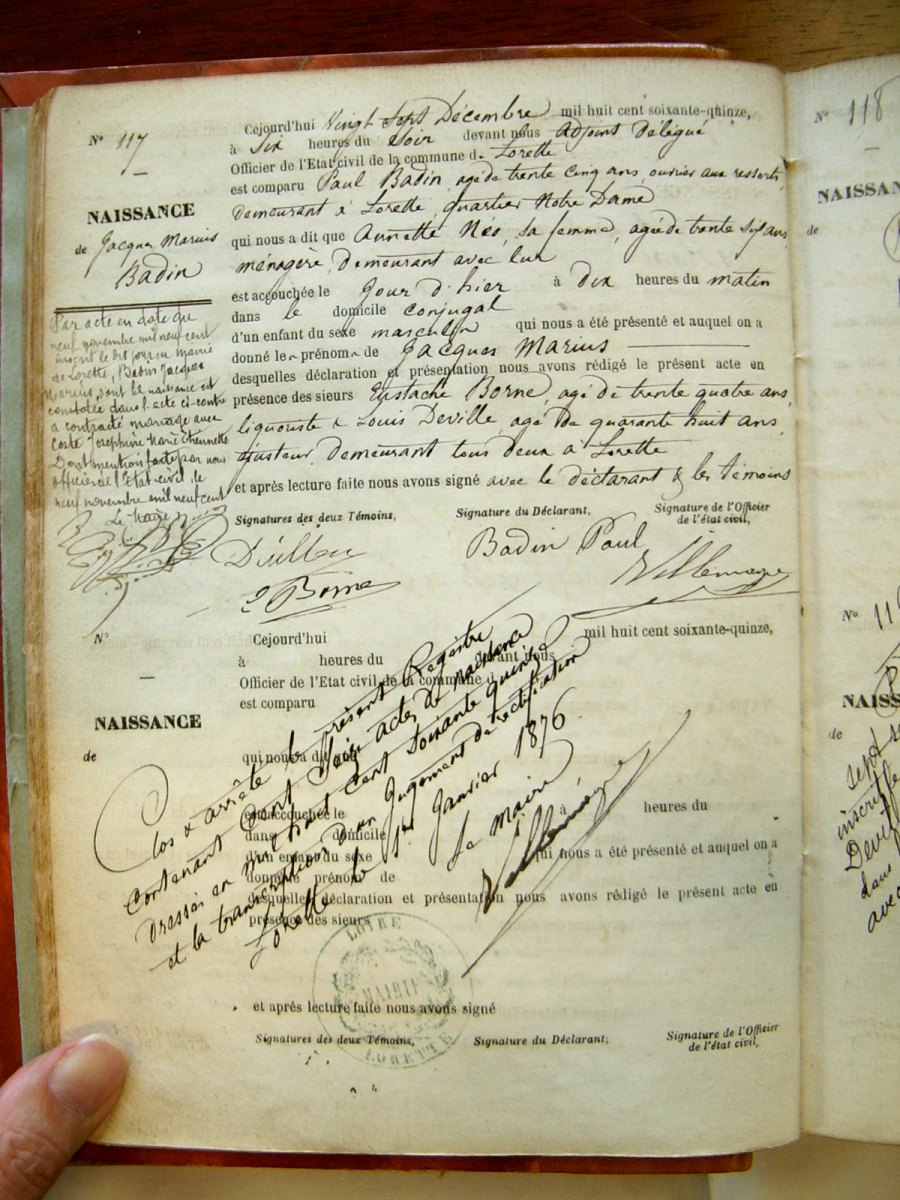 N° 117
NAISSANCE
de Jacques Marius
Badin
Par acte en date du
neuf novembre mil neuf cent
inscrit le dit jour en mairie
de Lorette, Badin Jacques
Marius, dont la naissance est
constatée dans l'acte ci-contre
a contracté mariage avec
Coste Josephine Marie Etiennette
Dont mention faite par nous
officier de l'Etat civil, le
neuf novembre mil neuf cent
Le Maire
Cejourd'hui Vingt Sept Décembre mil huit cent soixante-quinze,
à Six heures du Soir devant nous Adjoint Délégué
Officier de l'Etat civil de la commune de Lorette
est comparu Paul Badin, agé de trente cinq ans, ouvrier aux ressorts,
demeurant à Lorette, quartier Notre Dame
qui nous a dit que Annette Néo, sa femme, agée de trente six ans,
ménagère, demeurant avec lui
est accouchée le Jour d'hier à dix heures du matin
dans le domicile conjugal
d'un enfant du sexe masculin qui nous a été présenté et auquel on a
donné les prénoms de Jacques Marius
desquelles déclaration et présentation nous avons rédigé le présent acte en
présence des sieurs Eustache Borne, agé de trente quatre ans,
liquoriste & Louis Deville, agé de quarante huit ans,
ajusteur, demeurant tous deux à Lorette
et après lecture faite nous avons signé avec le déclarant & les témoins
Signatures des deux Témoins, Signature du Déclarant, Signature de l'Officier
de l'état civil,
Badin Paul
Villemagne
E Borne
N°
NAISSANCE
de
Cejourd'hui mil huit cent soixante-quinze,
à heures du devant nous
Officier de l'Etat civil de la commune d
est comparu
qui nous a dit que
est accouchée le à heures du
dans domicile
d'un enfant du sexe qui nous a été présenté et auquel on a
donné prénom de
desquelles déclaration et présentation nous avons rédigé le présent acte en
présence des sieurs
et après lecture faite nous avons signé
Signatures des deux Témoins, Signature du Déclarant; Signature de l'Officier
de l'état civil,
Clos & arrêté le présent Registre
contenant Cent Seize actes de naissance
dressés en mil huit cent soixante quinze
et la transcription d'un Jugement de rectification
Lorette le 1er Janvier 1876
Le Maire,
Villemagne
LOIRE
MAIRIE
LORETTE
N° 118
NAISSAN
de
N° 11
NAISS
de
sept
inscrit
Devil
dans
avec